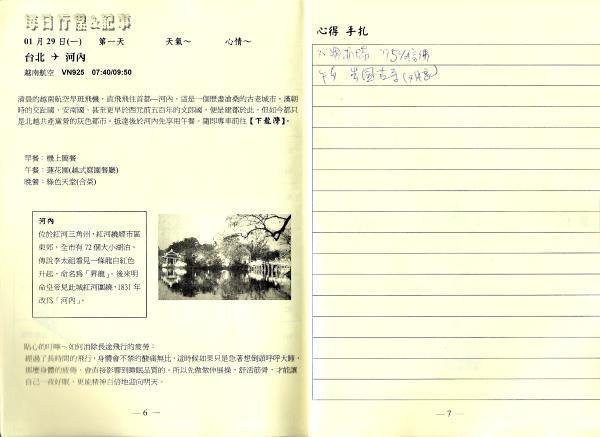 每日行程&記事
01 月 29 日(一) 第一天 天氣～ 心情～
台北 → 河內
越南航空 VN925 07:40/09:50
清晨的越南航空早班飛機，直飛飛往首都—河內，這是一個歷盡滄桑的古老城市。漢朝
時的交趾國、安南國、甚至更早於西元前五百年的文郎國，便是建都於此，但如今都只
是北越共產黨營的灰色都市。抵達後於河內先享用午餐。隨即專車前往【下龍灣】。
早餐：機上簡餐
午餐：蓮花園(越式庭園餐廳)
晚餐：綠色天堂(合菜)
河內
位於紅河三角州，紅河繞經市區
東郊，全市有 72 個大小湖泊。
傳說李太祖看見一條龍自紅色
升起，命名為「昇龍」。後來明
命皇帝見此城紅河圍繞，1831 年
改為「河內」。
貼心的叮嚀～如何消除長途飛行的疲勞：
經過了長時間的飛行，身體會不禁的酸痛無比，這時候如果只是急著想倒頭呼呼大睡，
那麼身體的疲倦，會直接影響到睡眠品質的。所以先做做伸展操，舒活筋骨，才能讓
自己一夜好眠，更能精神百倍地迎向明天。
— 6 —
心得 手扎
— 7 —